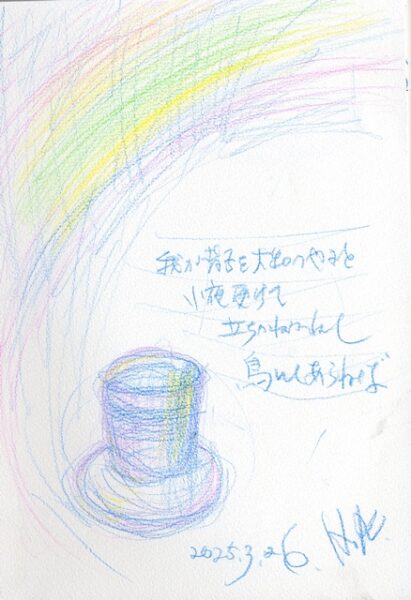 我が背子を大和へやると
小夜更けて
立ち
鳥にしあらねば
2025.3.26.